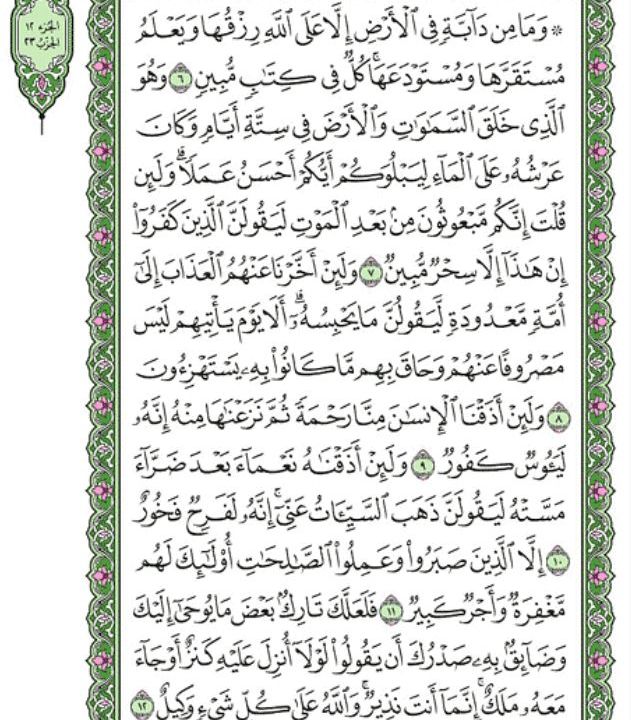 الجزء ١٢
الحزب ٢٣
۞ وَمَا مِن دَآبَّةٍ فِي ٱلْأَرْضِ إِلَّا عَلَى ٱللَّهِ رِزْقُهَا وَيَعْلَمُ
مُسْتَقَرَّهَا وَمُسْتَوْدَعَهَاۚ كُلٌّ فِي كِتَٰبٍ مُّبِينٍ ٦ وَهُوَ
ٱلَّذِي خَلَقَ ٱلسَّمَٰوَٰتِ وَٱلْأَرْضَ فِي سِتَّةِ أَيَّامٍ وَكَانَ
عَرْشُهُۥ عَلَى ٱلْمَآءِ لِيَبْلُوَكُمْ أَيُّكُمْ أَحْسَنُ عَمَلًاۗ وَلَئِن
قُلْتَ إِنَّكُم مَّبْعُوثُونَ مِنۢ بَعْدِ ٱلْمَوْتِ لَيَقُولَنَّ ٱلَّذِينَ كَفَرُوٓاْ
إِنْ هَٰذَآ إِلَّا سِحْرٌ مُّبِينٌ ٧ وَلَئِنْ أَخَّرْنَا عَنْهُمُ ٱلْعَذَابَ إِلَىٰٓ
أُمَّةٍ مَّعْدُودَةٍ لَّيَقُولُنَّ مَا يَحْبِسُهُۥٓۗ أَلَا يَوْمَ يَأْتِيهِمْ لَيْسَ
مَصْرُوفًا عَنْهُمْ وَحَاقَ بِهِم مَّا كَانُواْ بِهِۦ يَسْتَهْزِءُونَ
٨ وَلَئِنْ أَذَقْنَا ٱلْإِنسَٰنَ مِنَّا رَحْمَةً ثُمَّ نَزَعْنَٰهَا مِنْهُ إِنَّهُۥ
لَيَـُٔوسٌ كَفُورٌ ٩ وَلَئِنْ أَذَقْنَٰهُ نَعْمَآءَ بَعْدَ ضَرَّآءَ
مَسَّتْهُ لَيَقُولَنَّ ذَهَبَ ٱلسَّيِّـَٔاتُ عَنِّيٓۚ إِنَّهُۥ لَفَرِحٌ فَخُورٌ
١٠ إِلَّا ٱلَّذِينَ صَبَرُواْ وَعَمِلُواْ ٱلصَّٰلِحَٰتِ أُوْلَٰٓئِكَ لَهُم
مَّغْفِرَةٌ وَأَجْرٌ كَبِيرٌ ١١ فَلَعَلَّكَ تَارِكٌۢ بَعْضَ مَا يُوحَىٰٓ إِلَيْكَ
وَضَآئِقٌۢ بِهِۦ صَدْرُكَ أَن يَقُولُواْ لَوْلَآ أُنزِلَ عَلَيْهِ كَنزٌ أَوْ جَآءَ
مَعَهُۥ مَلَكٌۚ إِنَّمَآ أَنتَ نَذِيرٌۚ وَٱللَّهُ عَلَىٰ كُلِّ شَيْءٍ وَكِيلٌ ١٢